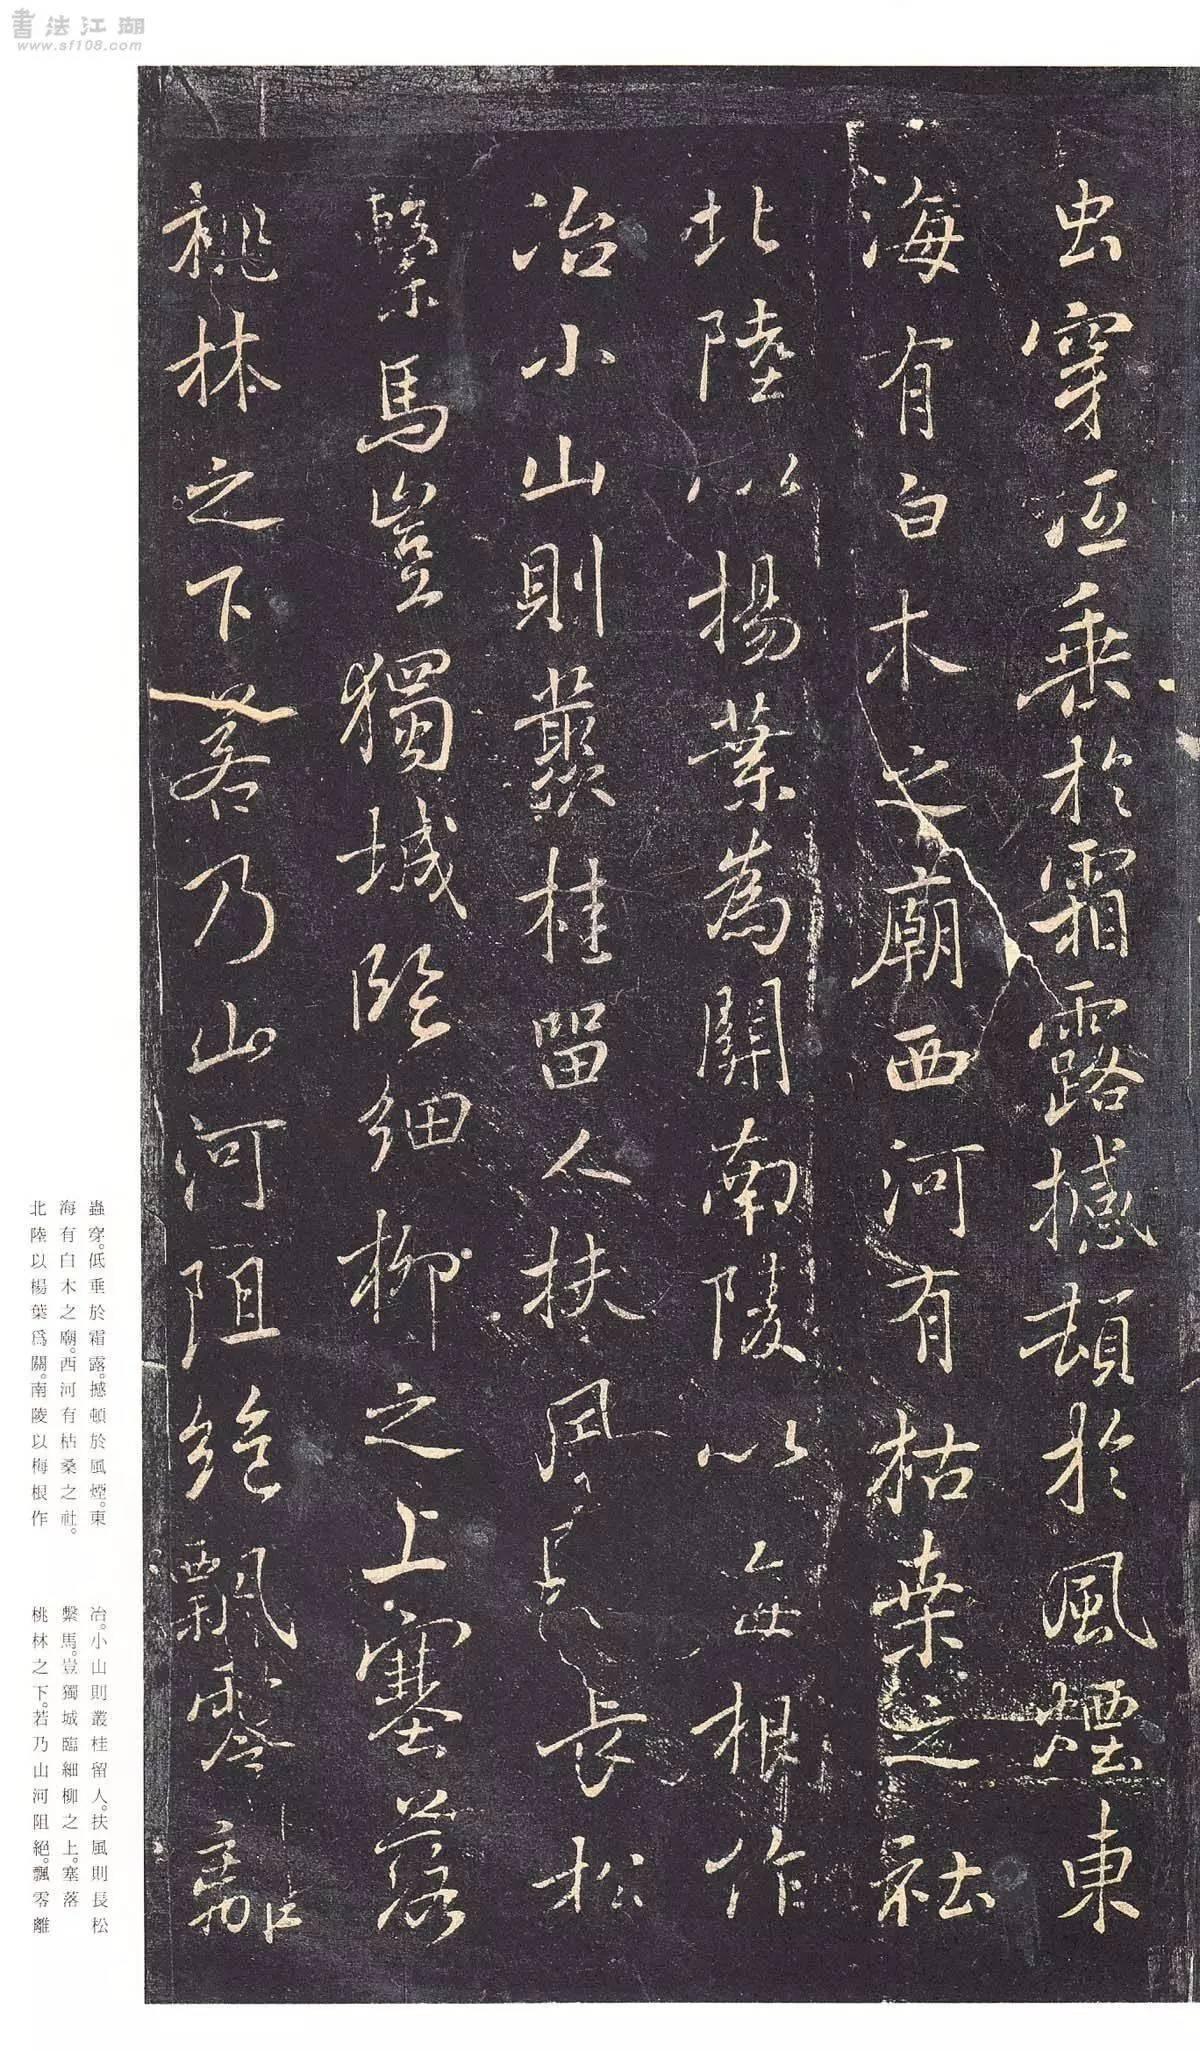 書法江湖
www.sf108.com
虫穿低垂於霜露撼頓於風煙東
海有白木之廟西河有枯桒之社
北陸以揚葉為關南陵以每根作
冶小山則叢桂留人扶風則長松
繫馬豈獨城臨細柳之上塞落
桃林之下若乃山河阻絕飄零離
蟲穿。低垂於霜露。撼頓於風煙。東
海有白木之廟。西河有枯桑之社。
北陸以楊葉爲關。南陵以梅根作
冶。小山則叢桂留人。扶風則長松
繫馬。豈獨城臨細柳之上。塞落
桃林之下。若乃山河阻絕。飄零離